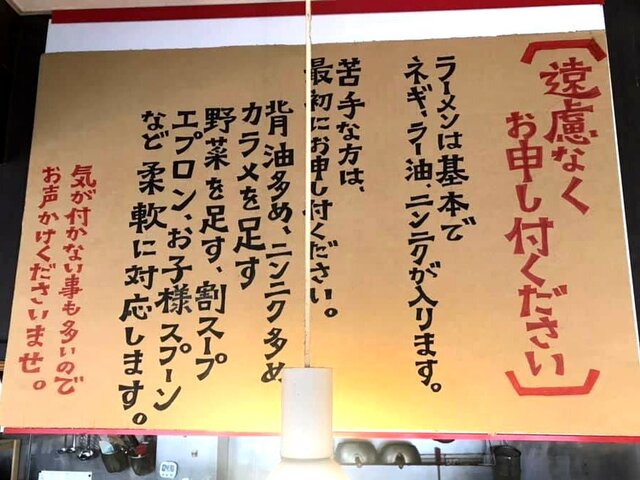 遠慮なく
お申し付ください
ラーメンは基本で
ネギ、ラー油、ニンニクが入ります。
苦手な方は、
最初にお申し付ください。
背油多め、ニンニク多め
カラメを足す
野菜を足す、割スープ
エプロン、お子様スプーン
など柔軟に対応します。
気が付かない事も多いので
お声かけくださいませ。